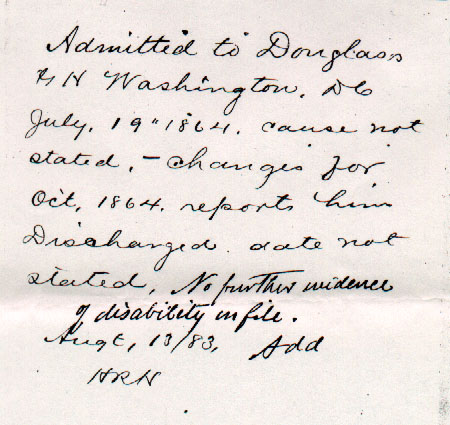 Admitted to Douglass
G H Washington, DC
July, 19" 1864. cause not
stated, - changes for
Oct, 1864. reports him
Discharged. date not
stated, No further evidence
of disability on file.
Augt, 13/83, Add
HRH